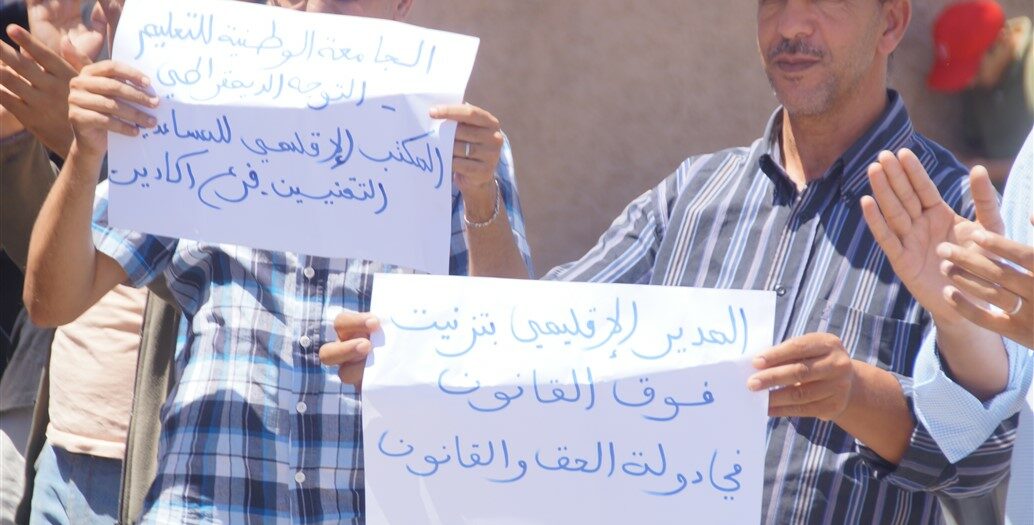 الجامعة الوطنية للتعليم
_ التوجه الديمقراطي _
المكتب الإقليمي للمساعدين
التقنيين. فرع اكادير
المدير الإقليمي بتزنيت
فوق القانون
في دولة الحق والقانون